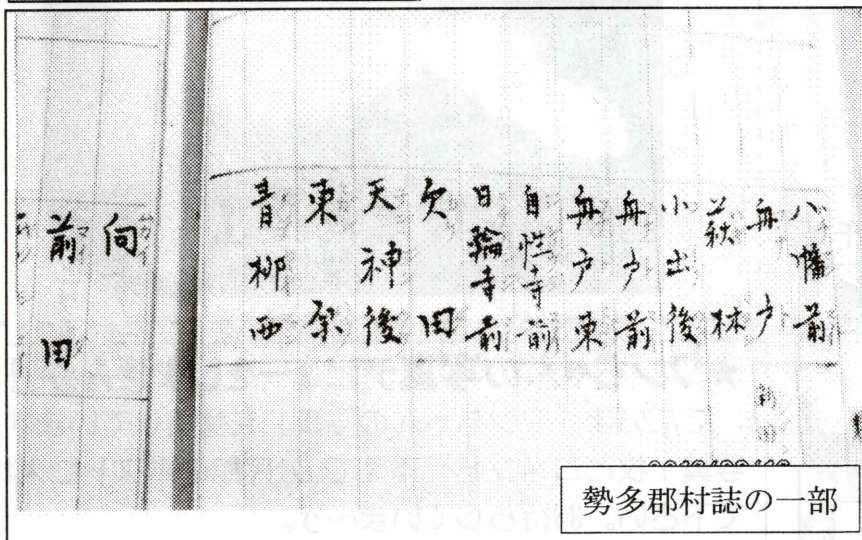 八幡前
舟戸
萩林
小出後
舟戸前
舟戸東
自性寺前
日輪寺前
欠田
天神後
東原
青柳西
向
前田
勢多郡村誌の一部